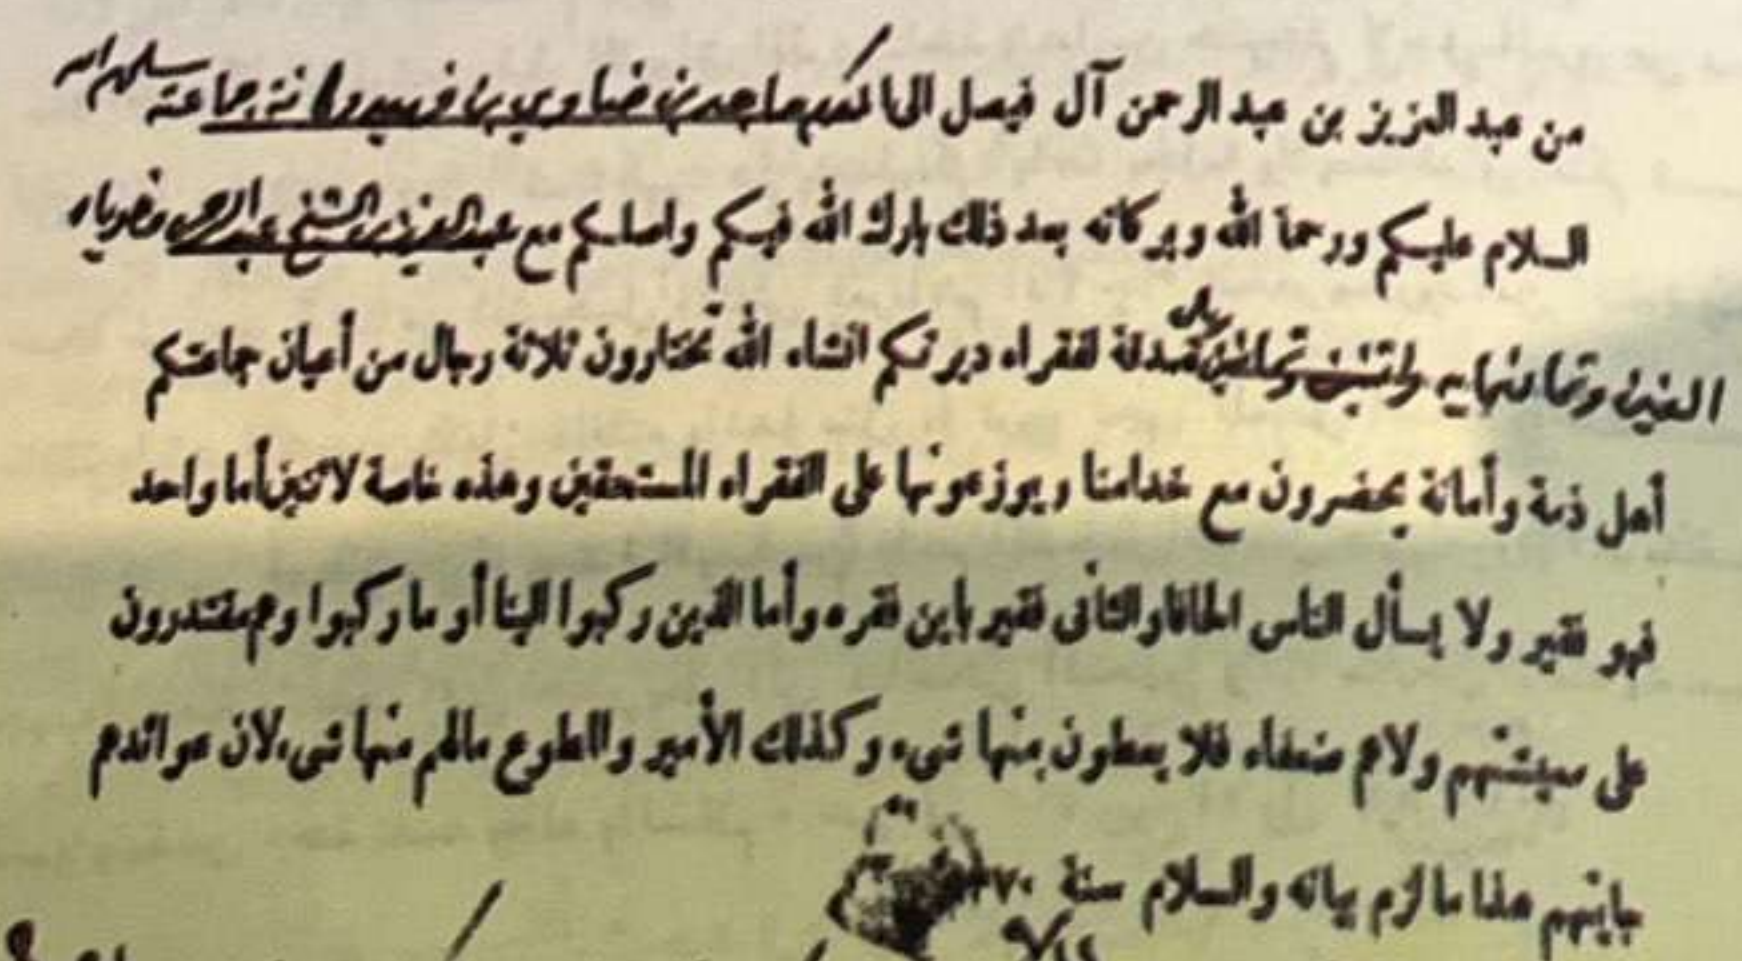 من عبد العزيز بن عبد الرحمن آل فيصل الى ماجد بن ضاوي بن جماعته سلمهم الله
السلام عليكم ورحمة الله وبركاته بعد ذلك بارك الله فيكم واصلكم مع عبد العزيز بن الشيخ عبد الرحمن
الفين وثمانمايه واثنين وثمانين ريال صدقة لفقراء ديرتكم انشاء الله تختارون ثلاثة رجال من أعيان جماعتكم
أهل ذمة وأمانة يحضرون مع خدامنا ويوزعونها على الفقراء المستحقين وهذه خاصة لاثنين أما واحد
فهو فقير ولا يسأل الناس الحافا والثانى فقير باين فقره وأما الذين ركبوا الينا أو ما ركبوا وهم مقتدرون
على معيشتهم ولاهم ضعفاء فلا يعطون منها شىء وكذلك الأمير والمطوع مالهم منها شىء لان عوائدهم
باينهم هذا ما لزم بيانه والسلام سنة